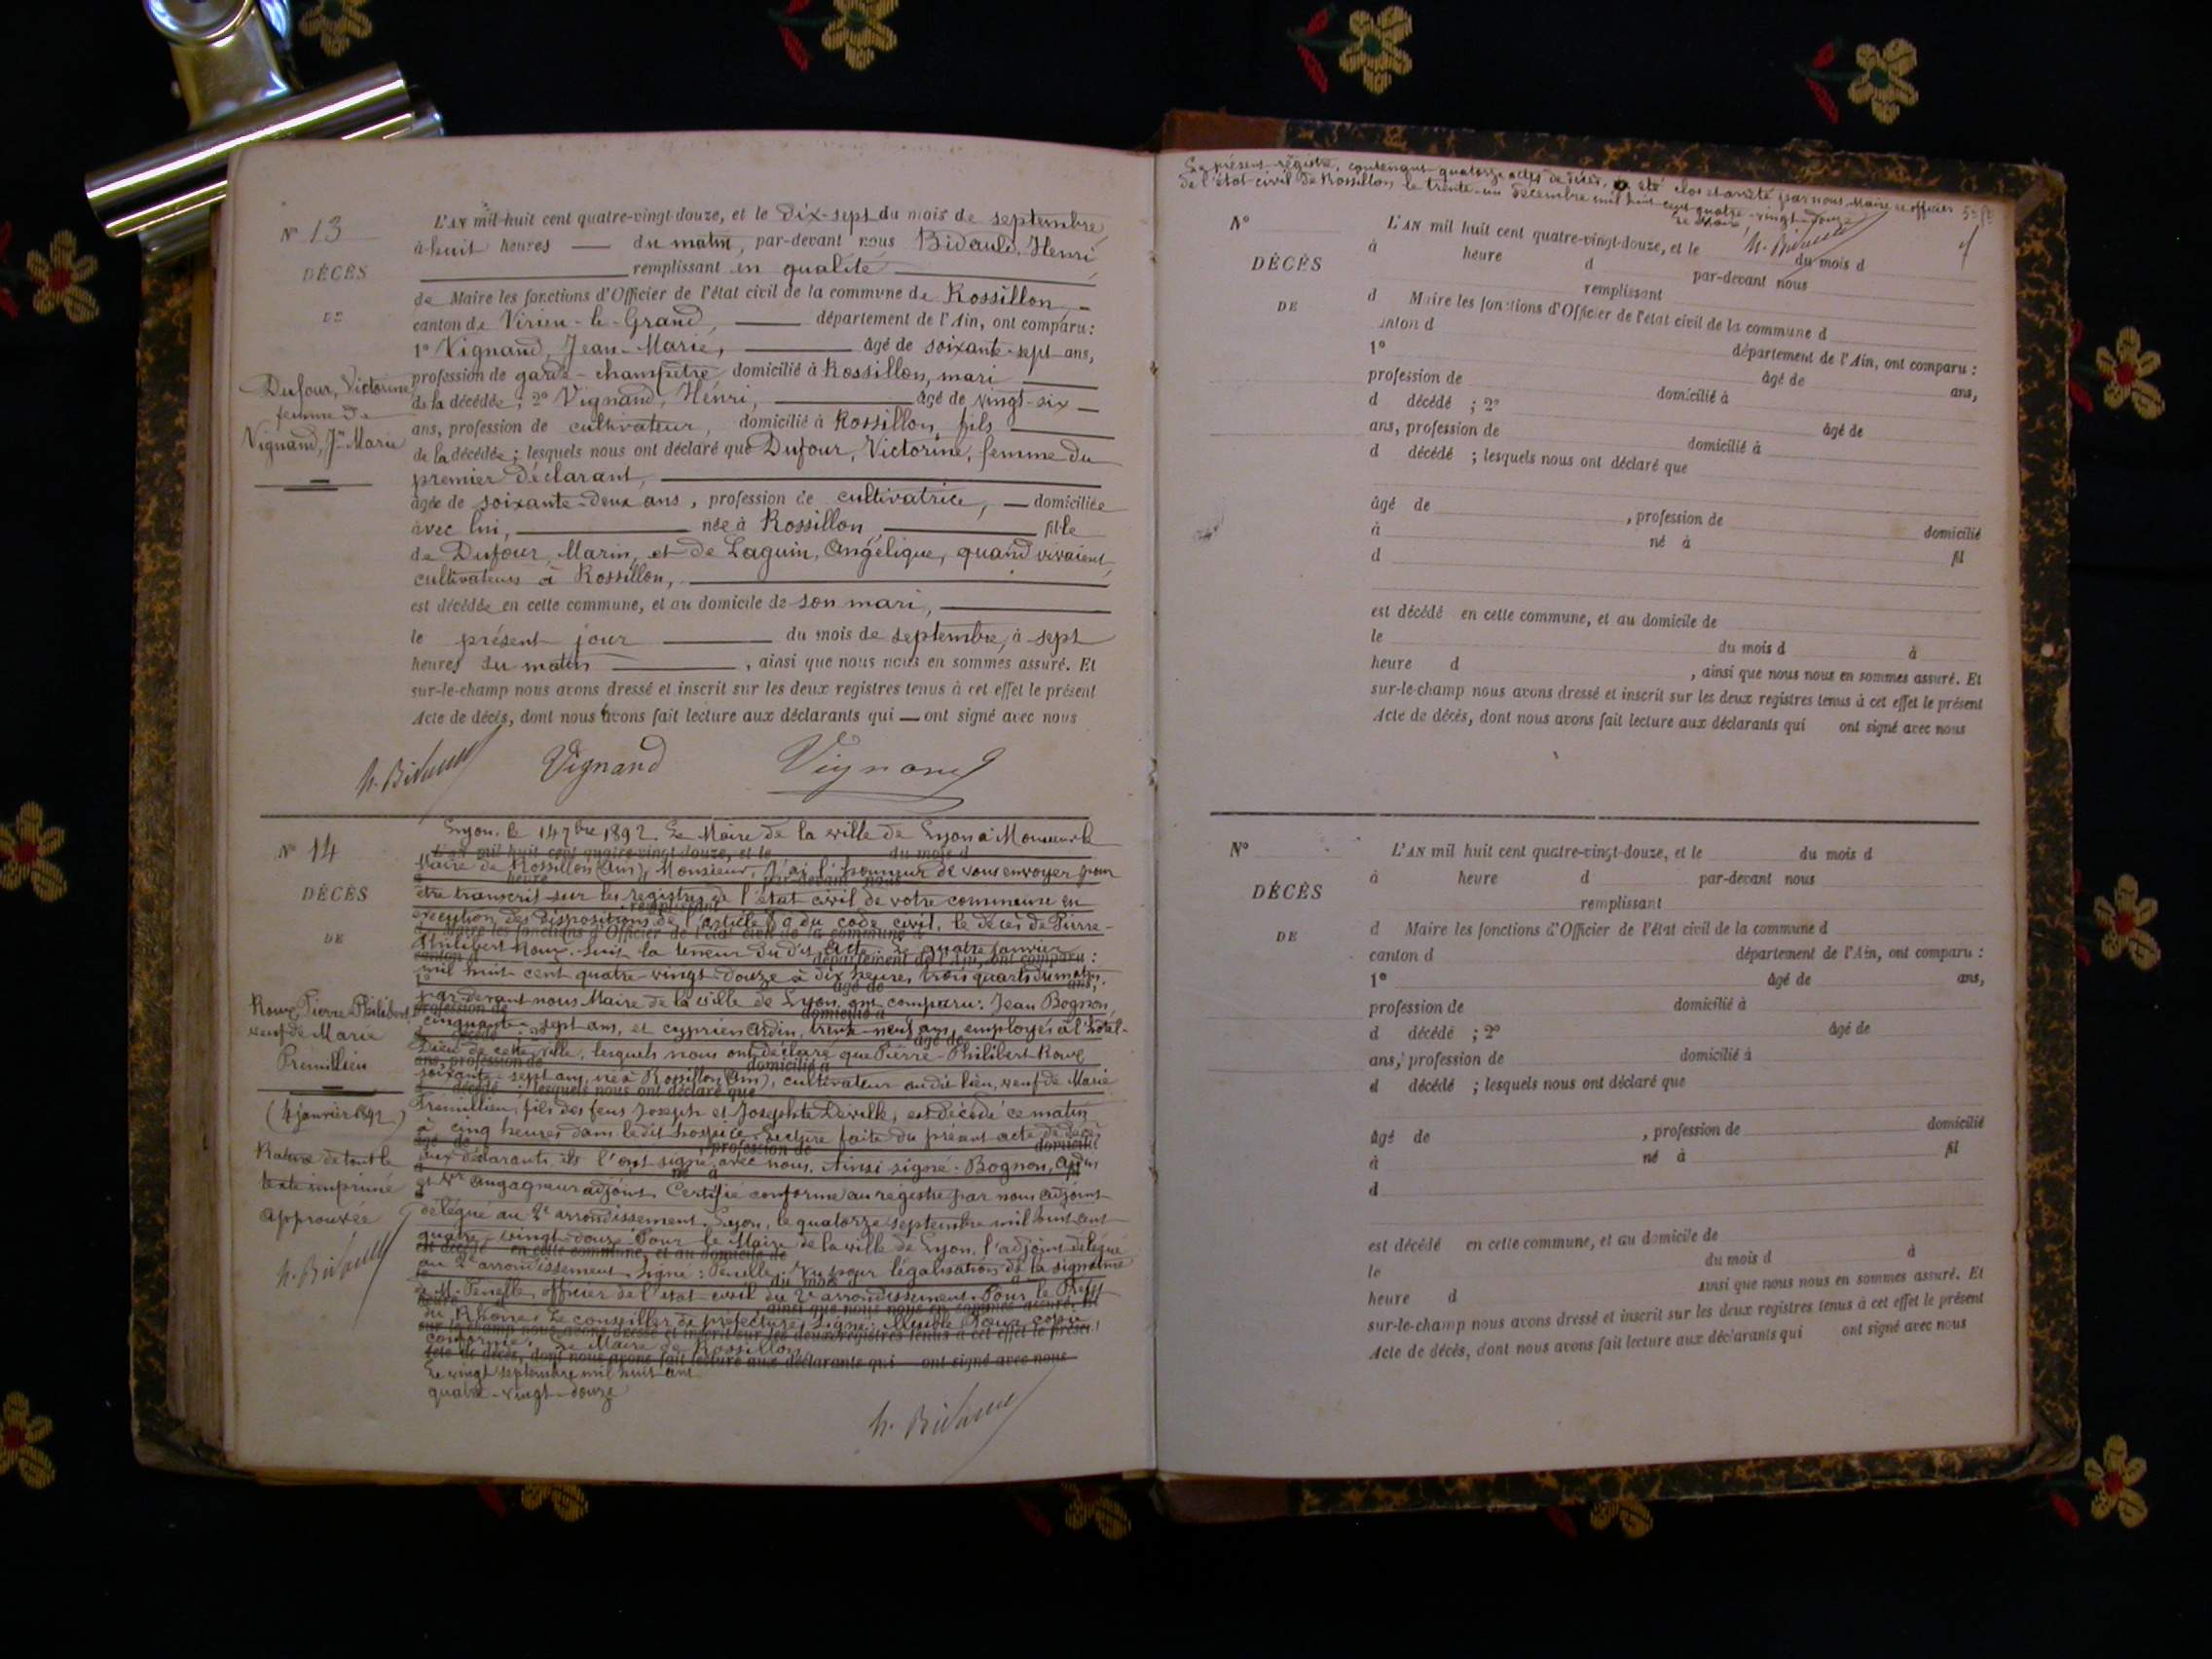 N° 13
DÉCÈS
DE
Dufour, Victorine
femme de
Vignand, Jn Marie
L'AN mil huit cent quatre-vingt-douze, et le dix-sept du mois de septembre,
à huit heures — du matin, par-devant nous Bidauld, Henri,
remplissant en qualité
de Maire les fonctions d'Officier de l'état civil de la commune de Rossillon,
canton de Virieu-le-Grand, — département de l'Ain, ont comparu :
1° Vignand, Jean-Marie, — âgé de soixante-sept ans,
profession de garde-champêtre, domicilié à Rossillon, mari
de la décédée ; 2° Vignand, Henri, — âgé de vingt-six
ans, profession de cultivateur, domicilié à Rossillon, fils
de la décédée ; lesquels nous ont déclaré que Dufour, Victorine, femme du
premier déclarant,
âgée de soixante-deux ans, profession de cultivatrice, — domiciliée
avec lui, — née à Rossillon, — fille
de Dufour, Marin, et de Laguin, Angélique, quand vivaient,
cultivateurs à Rossillon,
est décédée en cette commune, et au domicile de son mari,
le présent jour — du mois de septembre, à sept
heures du matin —, ainsi que nous nous en sommes assuré. Et
sur-le-champ nous avons dressé et inscrit sur les deux registres tenus à cet effet le présent
Acte de décès, dont nous avons fait lecture aux déclarants qui — ont signé avec nous
Vignand
Vignand
N° 14
DÉCÈS
DE
Roux Pierre Philibert
veuf de Marie
Premillieu
(4 janvier 1892)
Rature de tout le
texte imprimé
approuvée
Lyon, le 14 7bre 1892. Le Maire de la ville de Lyon à Monsieur le
Maire de Rossillon (Ain), Monsieur, J'ai l'honneur de vous envoyer pour
être transcrit sur les registres de l'état civil de votre commune en
exécution des dispositions de l'article 80 du code civil, le décès de Pierre-
Philibert Roux. Suit la teneur du dit acte : Le quatre janvier
mil huit cent quatre-vingt-douze à dix heures trois quarts du matin,
par devant nous Maire de la ville de Lyon, ont comparu : Jean Bognon,
cinquante-sept ans, et Cyprien Ardin, trente-neuf ans, employés à l'hôtel-
Dieu de cette ville, lesquels nous ont déclaré que Pierre-Philibert Roux
soixante-sept ans, né à Rossillon (Ain), cultivateur au dit lieu, veuf de Marie
Premillieu, fils des feus Joseph et Josephte Deville, est décédé ce matin
à cinq heures dans le dit hospice. Lecture faite du présent acte de décès
aux déclarants, ils l'ont signé avec nous. Ainsi signé : Bognon, Ardin
adjoint. Certifié conforme au registre par nous adjoint
délégué au 2e arrondissement. Lyon, le quatorze septembre mil huit cent
quatre-vingt-douze. Pour le Maire de la ville de Lyon, l'adjoint délégué
au 2e arrondissement. Signé : Penelle. Vu pour légalisation de la signature
de M. Penelle, officier de l'état civil du 2e arrondissement. Pour le Préfet
du Rhône, Le conseiller de préfecture, Signé : Pour copie
conforme, Le Maire de Rossillon,
Le vingt septembre mil huit cent
quatre-vingt-douze
Le présent registre, contenant quatorze actes de décès, a été clos et arrêté par nous Maire et officier
de l'état civil de Rossillon, le trente-un décembre mil huit cent quatre-vingt-douze
Le Maire,
N°
DÉCÈS
DE
L'AN mil huit cent quatre-vingt-douze, et le du mois d
à heure d par-devant nous
remplissant
d Maire les fonctions d'Officier de l'état civil de la commune d
canton d département de l'Ain, ont comparu :
1° âgé de ans,
profession de domicilié à
d décédé ; 2° âgé de
ans, profession de domicilié à
d décédé ; lesquels nous ont déclaré que
âgé de , profession de domicilié
à né à fil
d
est décédé en cette commune, et au domicile de
le du mois d à
heure d , ainsi que nous nous en sommes assuré. Et
sur-le-champ nous avons dressé et inscrit sur les deux registres tenus à cet effet le présent
Acte de décès, dont nous avons fait lecture aux déclarants qui ont signé avec nous
N°
DÉCÈS
DE
L'AN mil huit cent quatre-vingt-douze, et le du mois d
à heure d par-devant nous
remplissant
d Maire les fonctions d'Officier de l'état civil de la commune d
canton d département de l'Ain, ont comparu :
1° âgé de ans,
profession de domicilié à
d décédé ; 2° âgé de
ans, profession de domicilié à
d décédé ; lesquels nous ont déclaré que
âgé de , profession de domicilié
à né à fil
d
est décédé en cette commune, et au domicile de
le du mois d à
heure d ainsi que nous nous en sommes assuré. Et
sur-le-champ nous avons dressé et inscrit sur les deux registres tenus à cet effet le présent
Acte de décès, dont nous avons fait lecture aux déclarants qui ont signé avec nous